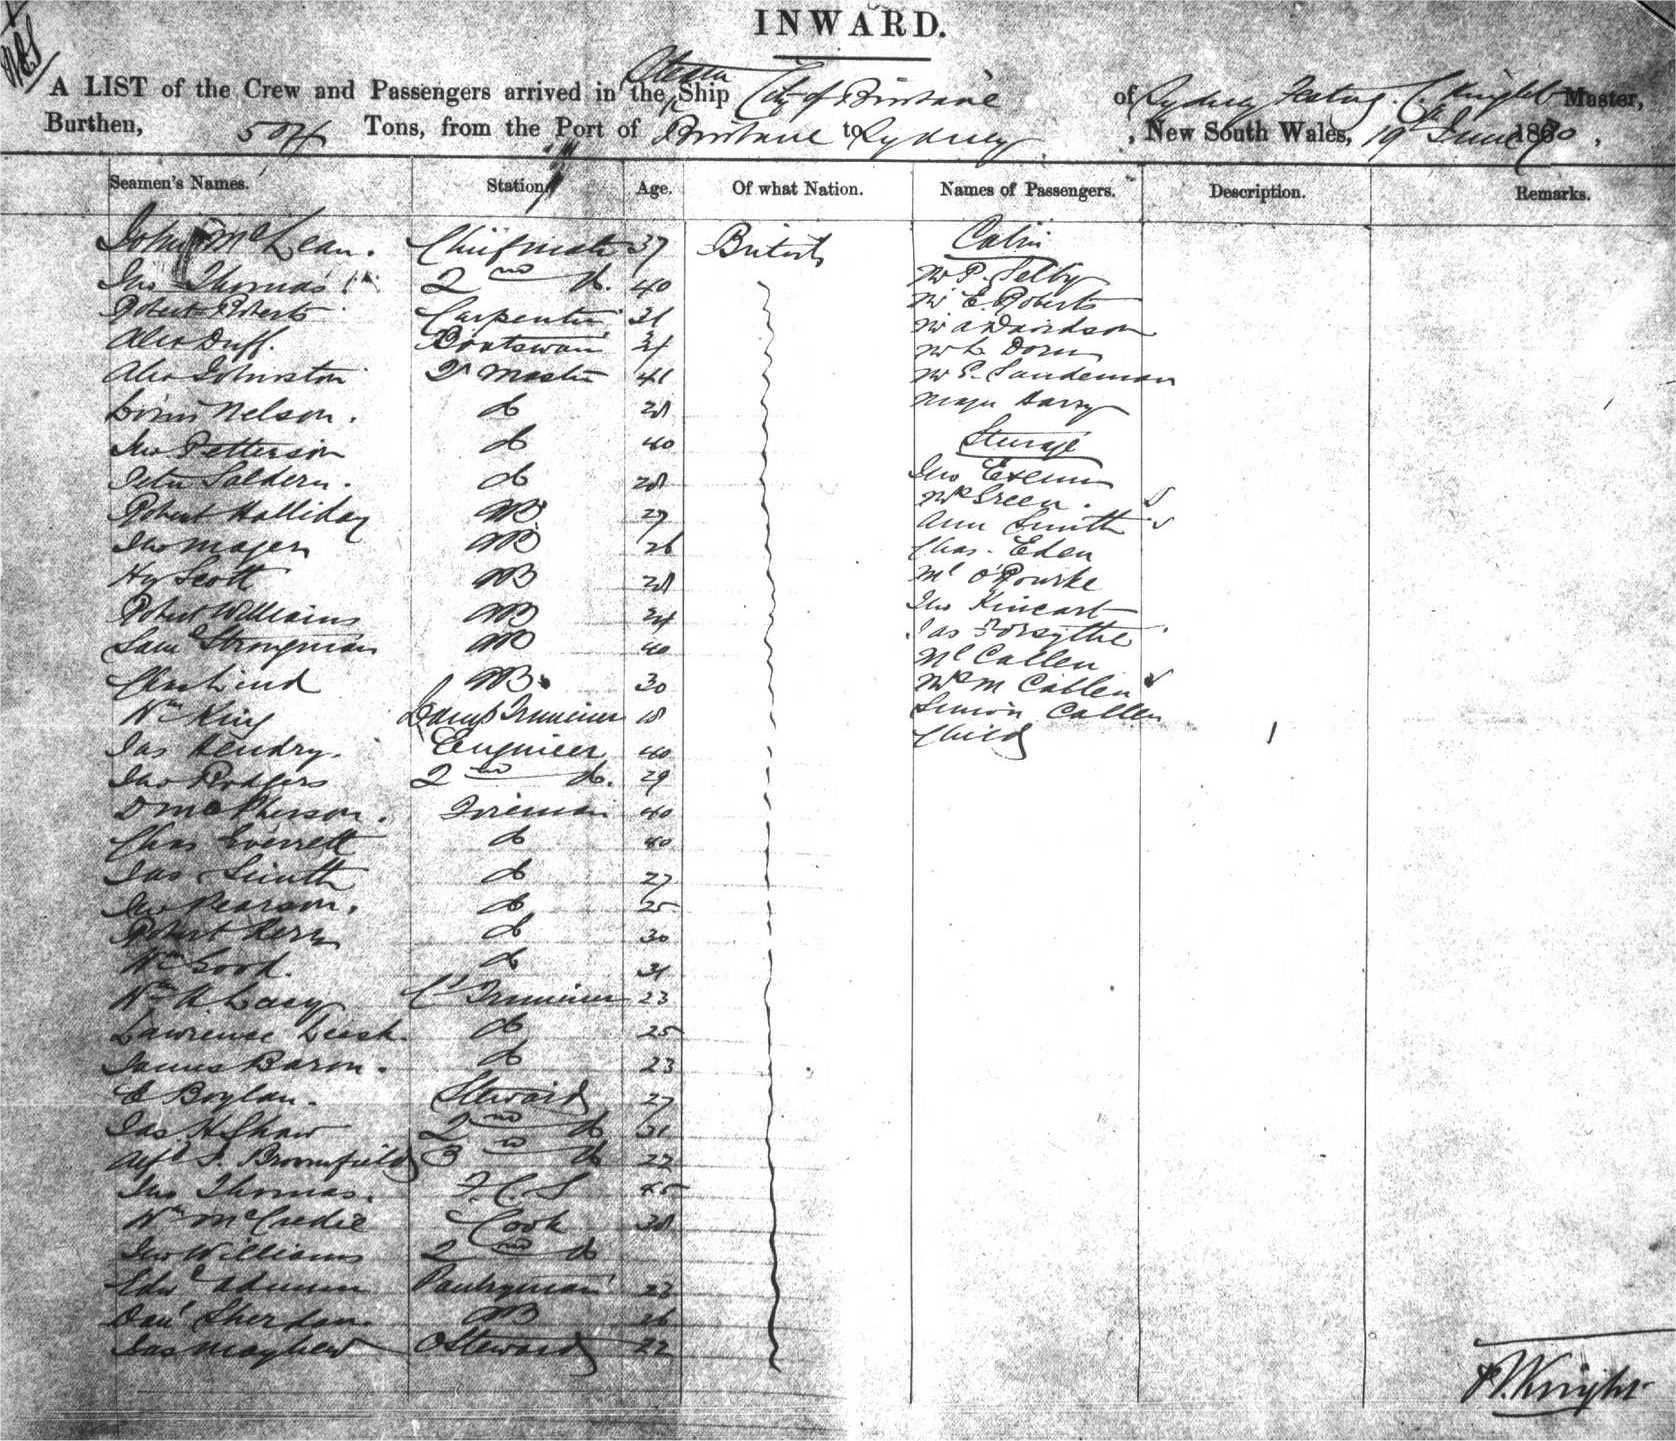 INWARD.
A LIST of the Crew and Passengers arrived in the Steam Ship City of Brisbane of Sydney Knight Master,
Burthen, 504 Tons, from the Port of Brisbane to Sydney, New South Wales, 19th June 1870,
Seamen's Names. Station Age. Of what Nation. Names of Passengers. Description. Remarks.
John McLean. Chief mate 37 British Cabin
Jno Thomas 2nd do. 40 Mr P. Selby
Robert Roberts Carpenter 31 Mr E. Roberts
Alex Duff. Boatswain Mr A Davidson
Alex Johnston Qr Master 41 Mr Dorn
Nelson. do 28 Mr Sandeman
Jno Petterson do 40 Major
Peter Saldern. do 28 Steerage
Robert Halliday AB 27 Jno
Jno Mager AB 26 Mrs Green.
Hy Scott AB 28 Ann Smith
Robert Williams AB 24 Chas. Eden
Saml Strongman AB 40 Ml O'Rourke
Chas Lind AB 30 Jno Kincart
Wm King Lamp Trimmer 18 Jas Forsythe
Jas Hendry. Engineer 40 Ml Callen
Jno Rodgers 2nd do. 29 Mrs M Callen
D McPherson. Fireman 40 Simon Callen
Chas Everrett do 40 Child 1
Jas Smith do 27
Jno Pearson. do 25
Robert Kerr do 30
Wm Good. do 31
Wm H. Lacy Cl Trimmer 23
Lawrence Leish. do 25
James Baron. do 23
E Boylan. Steward 27
Jas. H Shaw 2nd do 31
Alfd S. Broomfield 3rd do 22
Jno Thomas. F.C.S 45
Wm McCredie Cook 38
Jno Williams 2nd do
Edwd Pantryman 23
Danl Sherdan. AB 26
Jas Mayhew Steward 22
Knight